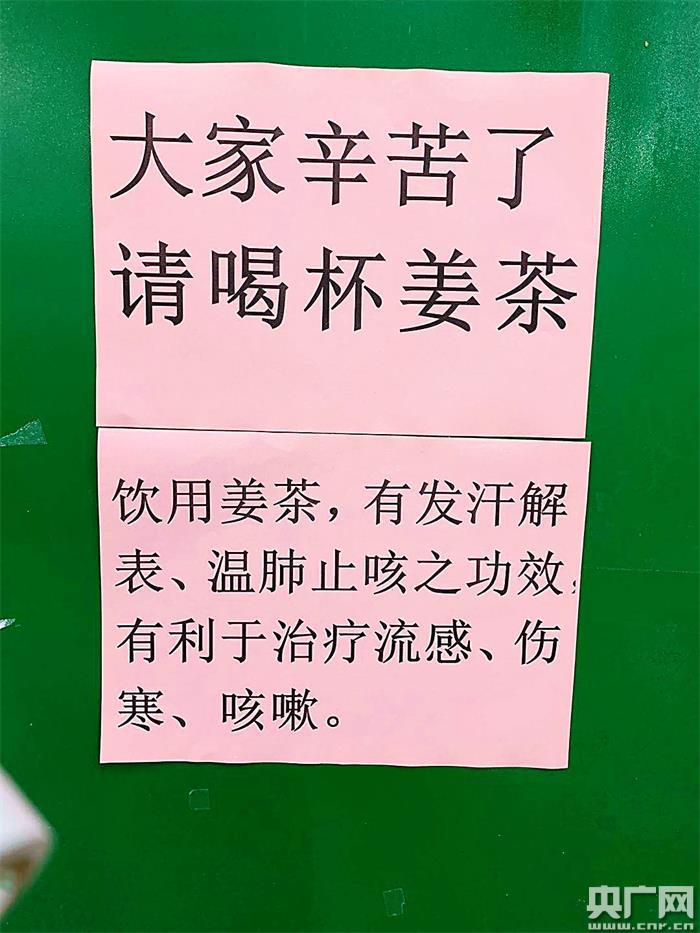 大家辛苦了
请喝杯姜茶
饮用姜茶，有发汗解
表、温肺止咳之功效，
有利于治疗流感、伤
寒、咳嗽。
央广网
www.cnr.cn